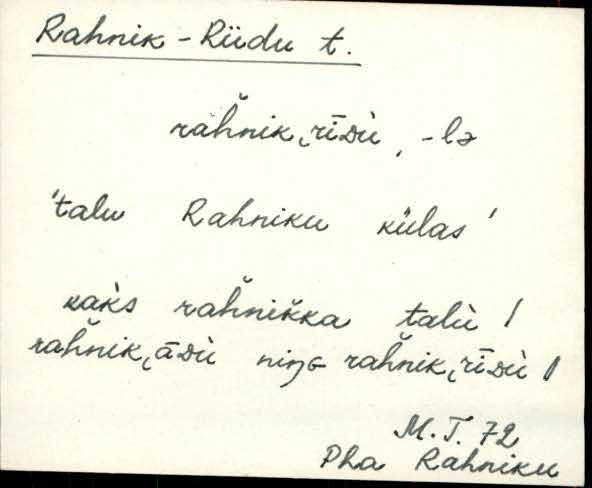 Rahnik-Riidu t.
rah̆nik˛rīᴅù, -lə
'talu Rahniku külas'
kak̀s rah̆nik̆ka talù /
rah̆nik˛āᴅù niŋɢ rah̆nik˛rīᴅù /
M.T. 72
Pha Rahniku